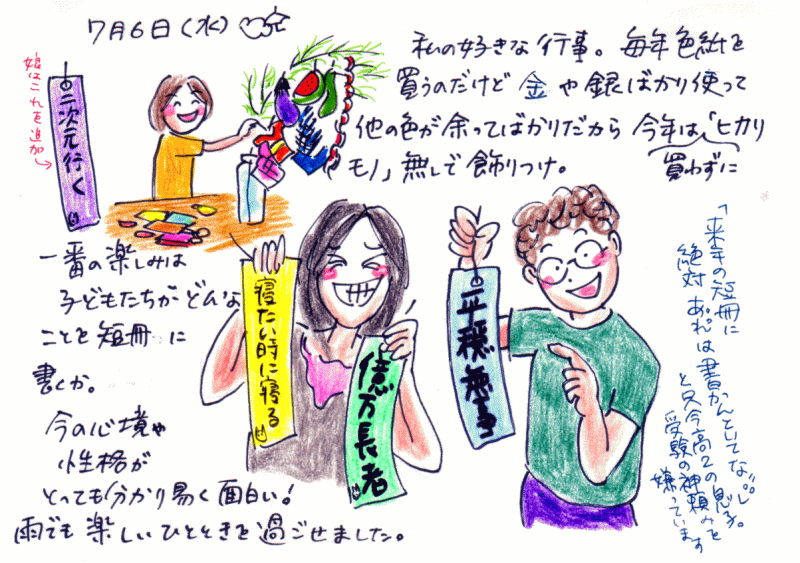 7月6日(水)
私の好きな行事。毎年色紙を
買うのだけど 金や銀ばかり使って
他の色が余ってばかりだから 今年は「ヒカリ
モノ」無しで飾りつけ。
買わずに
娘はこれを追加
二次元行く
一番の楽しみは
子どもたちがどんな
ことを短冊に
書くか。
今の心境や
性格が
とっても分かり易く面白い!
雨でも楽しいひとときを過ごせました。
寝たい時に寝る
億万長者
平穏無事
「来年の短冊に
絶対あれは書かんといてな。」
と只今高2の息子。
受験の神頼みを
嫌っています